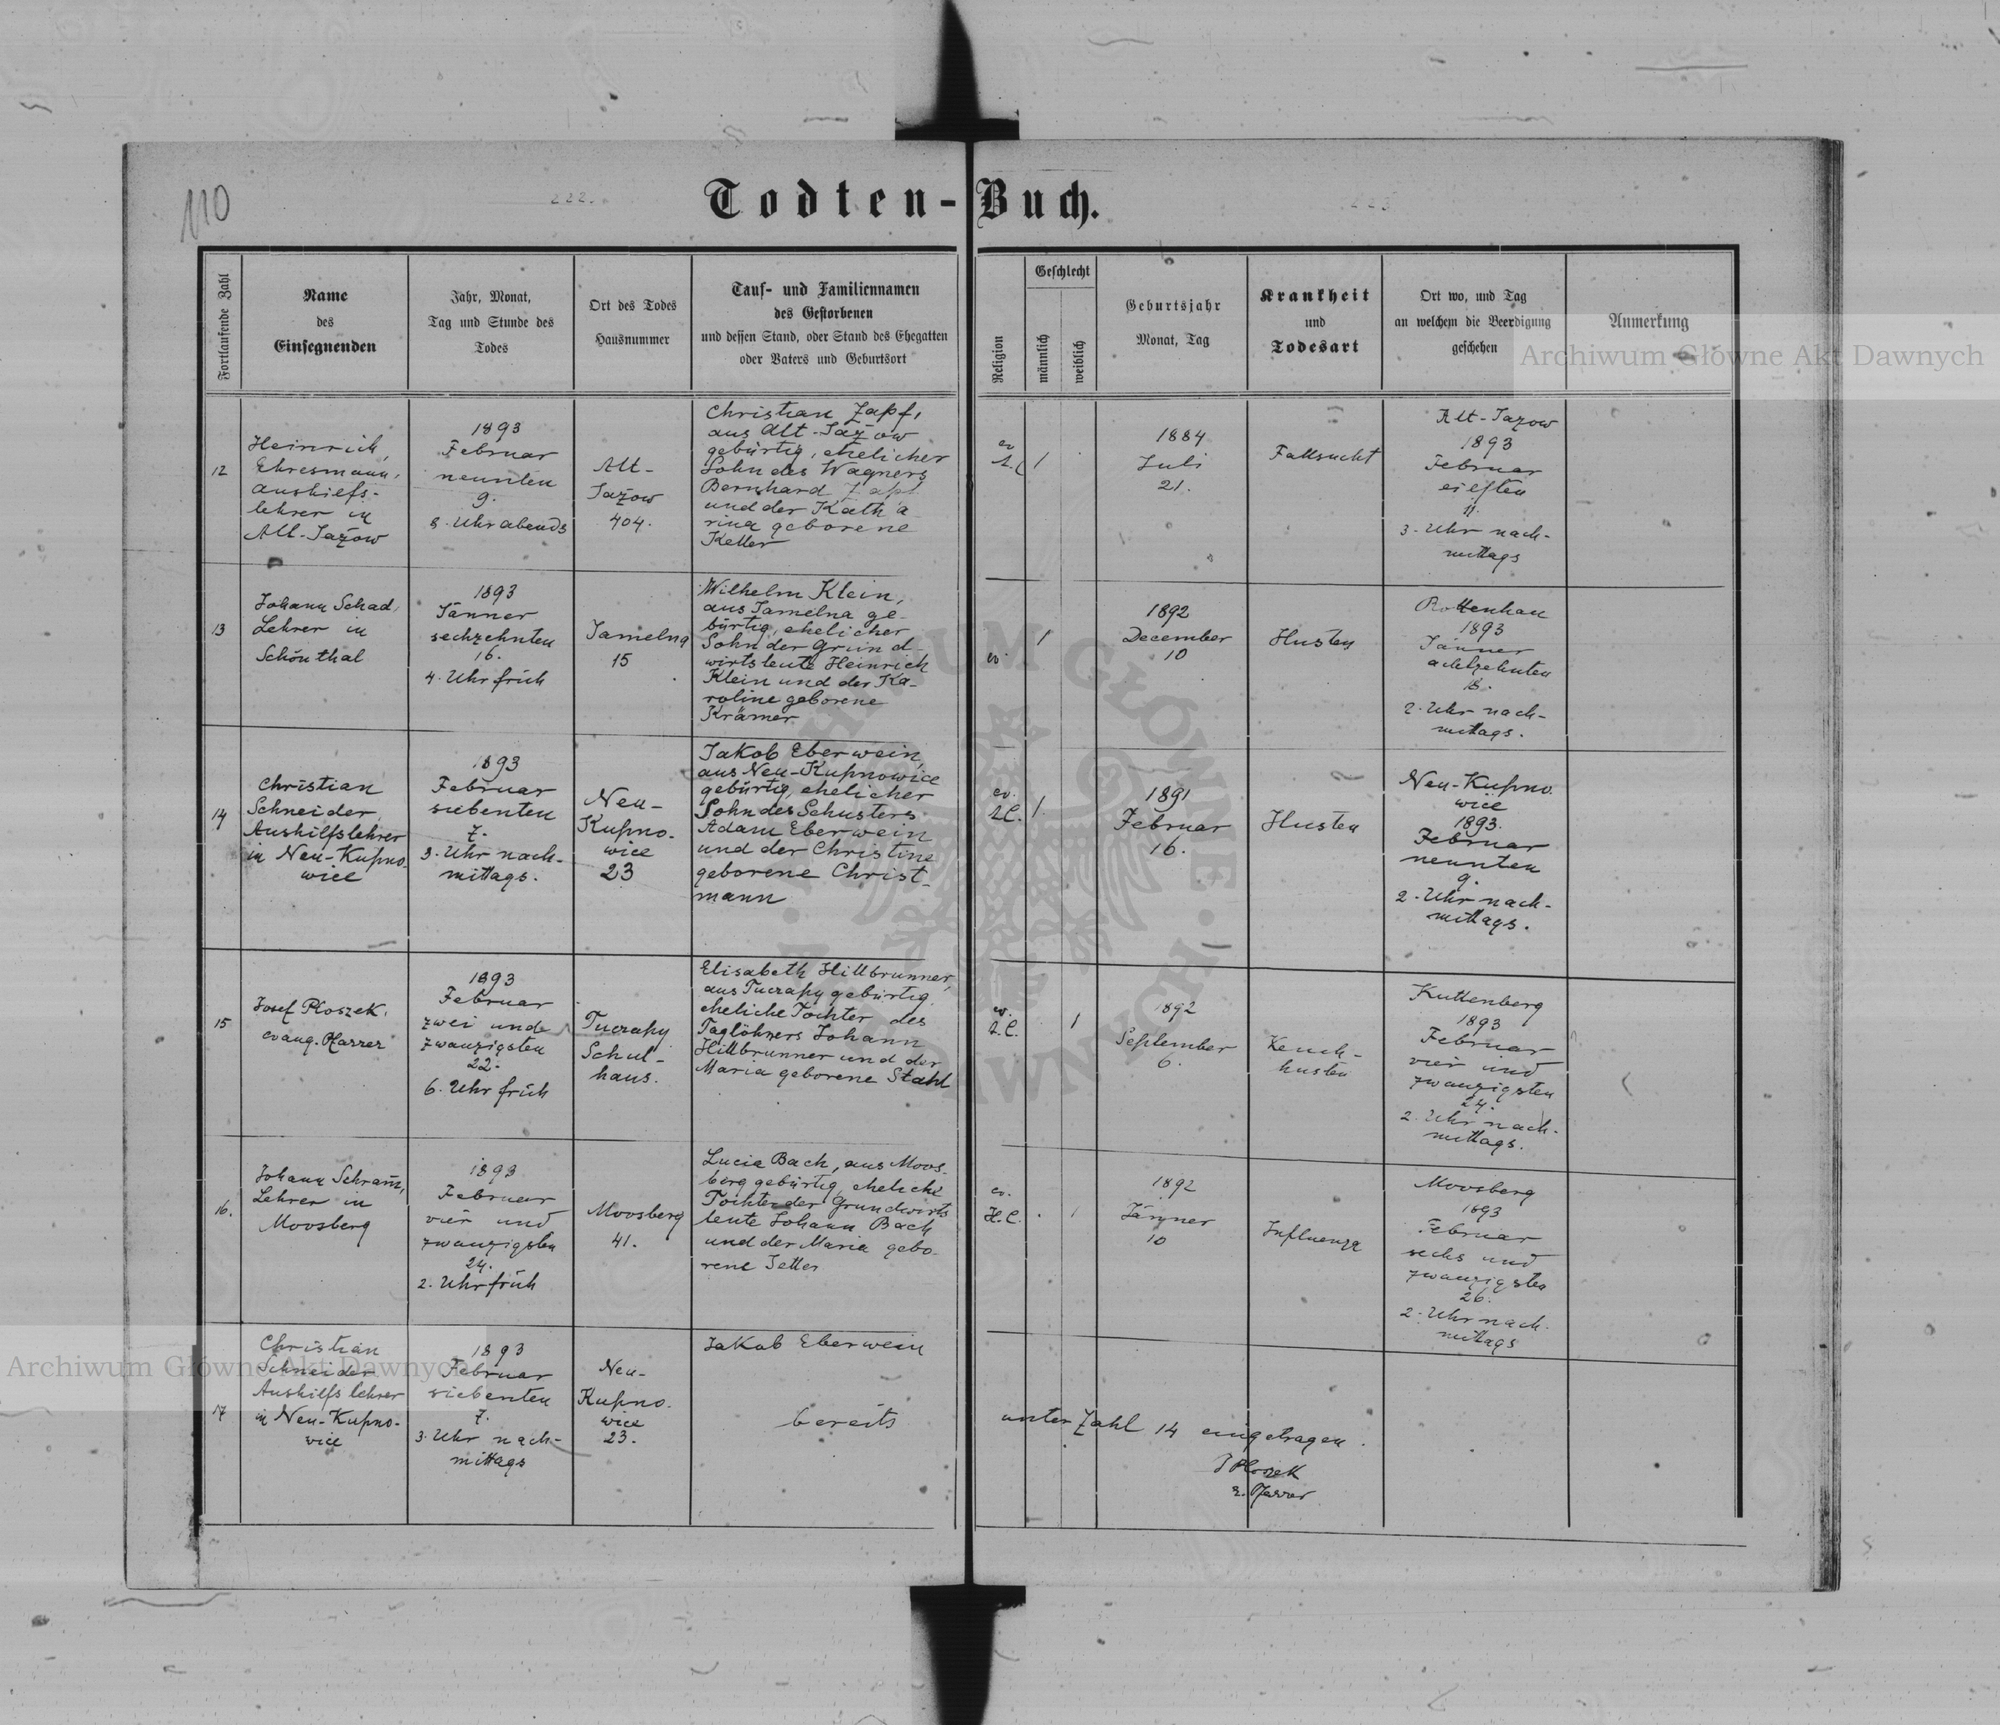 110
222.
223
Todten-Buch.
Fortlaufende Zahl
Name
des
Einsegnenden
Jahr, Monat,
Tag und Stunde des
Todes
Ort des Todes
Hausnummer
Tauf- und Familiennamen
des Gestorbenen
und dessen Stand, oder Stand des Ehegatten
oder Vaters und Geburtsort
Religion
Geschlecht
männlich
weiblich
Geburtsjahr
Monat, Tag
Krankheit
und
Todesart
Ort wo, und Tag
an welchem die Beerdigung
geschehen
Anmerkung
12
Heinrich,
Ehresmann,
Aushilfs-
lehrer in
Alt-Jažow
1893
Februar
neunten
9.
8. Uhr abends
Alt-
Jažow
404.
Christian Zapf,
aus Alt-Jažow
gebürtig, ehelicher
Sohn des Wagners
Bernhard Zapf
und der Katha
rina geborene
Keller
ev
A.C
1
1884
Juli
21.
Fallsucht
Alt-Jazow
1893
Februar
eilften
11.
3. Uhr nach-
mittags
13
Johann Schad,
Lehrer in
Schönthal
1893
Jänner
sechzehnten
16.
4. Uhr früh
Jamelna
15
Wilhelm Klein,
aus Jamelna ge-
bürtig, ehelicher
Sohn der Grund-
wirtsleute Heinrich
Klein und der Ka-
roline geborene
Krämer
ev.
1
1892
December
10
Husten
Rottenhan
1893
Jänner
achtzehnten
18.
2. Uhr nach-
mittags.
14
Christian
Schneider,
Aushilfslehrer
in Neu-Kupno.
wice
1893
Februar
siebenten
7.
3. Uhr nach-
mittags.
Neu-
Kupno.
wice
23
Jakob Eberwein,
aus Neu-Kupnowice
gebürtig, ehelicher
Sohn des Schusters
Adam Eberwein
und der Christine
geborene Christ-
mann
ev.
A.C.
1.
1891
Februar
16.
Husten
Neu-Kupno.
wice
1893.
Februar
neunten
9.
2. Uhr nach-
mittags.
15
Josef Ploszek,
evang. Pfarrer
1893
Februar
zwei und
zwanzigsten
22.
6. Uhr früh
Tuczapy
Schul-
haus.
Elisabeth Hillbrunner,
aus Tuczapy gebürtig,
eheliche Tochter des
Taglöhners Johann
Hillbrunner und der
Maria geborene Stahl
ev.
A.C.
1
1892
September
6.
Keuch-
husten
Kuttenberg
1893
Februar
vier und
zwanzigsten
24.
2. Uhr nach-
mittags.
16.
Johann Schram̄,
Lehrer in
Moosberg
1893
Februar
vier und
zwanzigsten
24.
2. Uhr früh
Moosberg
41.
Lucia Bach, aus Moos-
berg gebürtig, eheliche
Tochter der Grundwirts
leute Johann Bach
und der Maria gebo-
rene Jetter
ev.
H.C.
1
1892
Jänner
10
Influenza
Moosberg
1893
Februar
sechs und
zwanzigsten
26.
2. Uhr nach-
mittags
17
Christian
Schneider
Aushilfslehrer
in Neu-Kupno-
wice
1893
Februar
siebenten
7.
3. Uhr nach-
mittags
Neu-
Kupno.
wice
23.
Jakob Eberwein
bereits unter Zahl 14 eingetragen.
J Ploszek
e. Pfarrer
Archiwum Główne Akt Dawnych
Archiwum Główne Akt Dawnych
ARCHIWUM GŁÓWNE AKT DAWNYCH